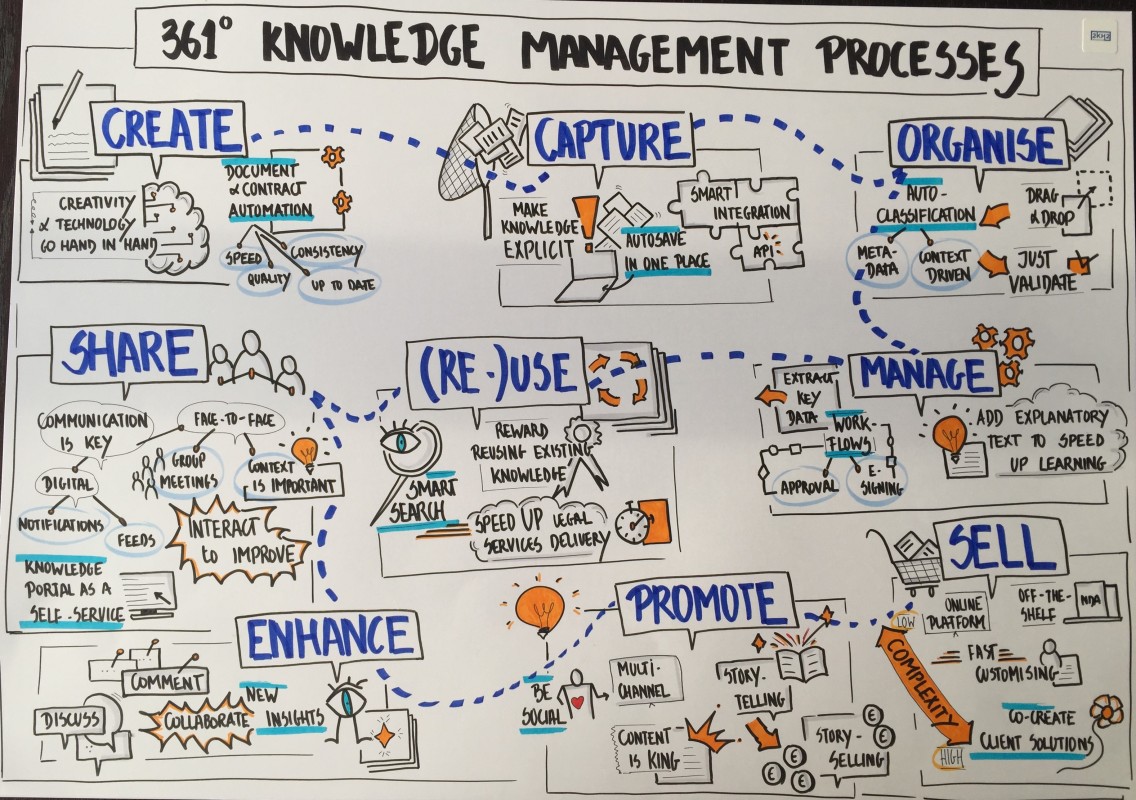 361° KNOWLEDGE MANAGEMENT PROCESSES
2KH2
CREATE
CREATIVITY
& TECHNOLOGY
GO HAND IN HAND
DOCUMENT
& CONTRACT
AUTOMATION
SPEED
CONSISTENCY
QUALITY
UP TO DATE
CAPTURE
MAKE
KNOWLEDGE
EXPLICIT
!
AUTOSAVE
IN ONE PLACE
SMART
INTEGRATION
API
ORGANISE
AUTO-
CLASSIFICATION
META-
DATA
CONTEXT
DRIVEN
DRAG
& DROP
JUST
VALIDATE
SHARE
COMMUNICATION
IS KEY
FACE-TO-FACE
GROUP
MEETINGS
CONTEXT
IS IMPORTANT
DIGITAL
NOTIFICATIONS
FEEDS
INTERACT
to IMPROVE
KNOWLEDGE
PORTAL AS A
SELF-SERVICE
(RE-)USE
REWARD
REUSING EXISTING
KNOWLEDGE
SMART
SEARCH
SPEED UP LEGAL
SERVICES DELIVERY
MANAGE
EXTRACT
KEY
DATA
WORK-
FLOWS
APPROVAL
E-
SIGNING
ADD EXPLANATORY
TEXT TO SPEED
UP LEARNING
ENHANCE
COMMENT
DISCUSS
COLLABORATE
NEW
INSIGHTS
PROMOTE
BE
SOCIAL
MULTI-
CHANNEL
CONTENT
IS KING
STORY-
TELLING
STORY-
SELLING
€
€
€
€
€
SELL
LOW
COMPLEXITY
HIGH
ONLINE
PLATFORM
OFF-THE-
SHELF
NDA
FAST
CUSTOMISING
CO-CREATE
CLIENT SOLUTIONS